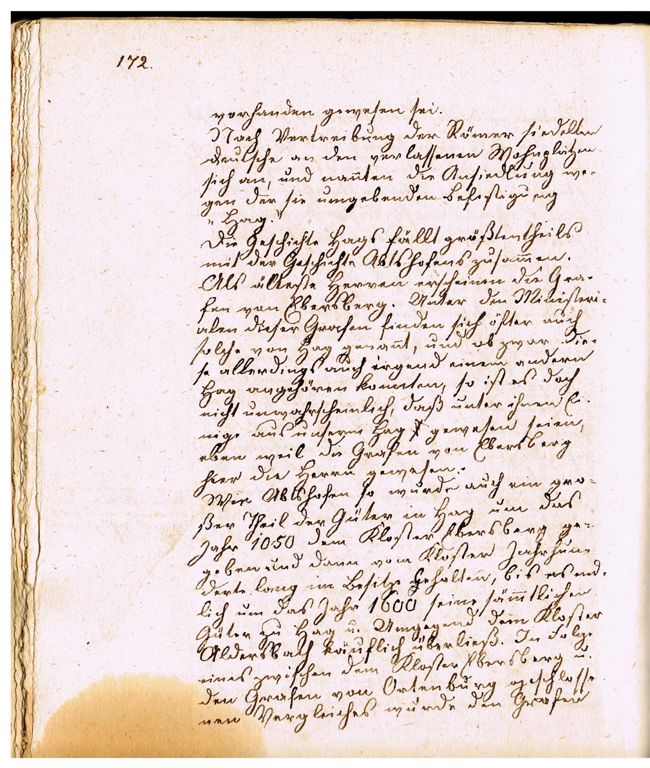 172.
vorhanden gewesen sei.
Nach Vertreibung der Römer siedelten
Deutsche an den verlassenen Wohnplätzen
sich an, und nannten die Ansiedlung we-
gen der sie umgebenden Befestigung
„Hag."
Die Geschichte Hags fällt größtentheils
mit der Geschichte Abtshofens zusammen.
Als älteste Herren erscheinen die Gra-
fen von Ebersberg. Unter den Ministeri-
alen dieser Grafen finden sich öfter auch
solche von Hag genannt, und ob zwar die-
se allerdings auch irgend einem andern
Hag angehören konnten, so ist es doch
nicht unwahrscheinlich, daß unter ihnen Ei-
nige aus unserm Hag gewesen seien,
eben weil die Grafen von Ebersberg
hier die Herrn gewesen.
Wie Abtshofen so wurde auch ein gro-
ßer Theil der Güter in Hag um das
Jahr 1050 dem Kloster Ebersberg ge-
geben und dann vom Kloster Jahrhun-
derte lang im Besitze gehalten, bis es end-
lich um das Jahr 1600 seine sämmtlichen
Güter zu Hag u. Umgegend dem Kloster
Aldersbach käuflich überließ. In Folge
eines zwischen dem Kloster Ebersberg u.
den Grafen von Ortenburg geschlosse-
nen Vergleiches wurde den Grafen